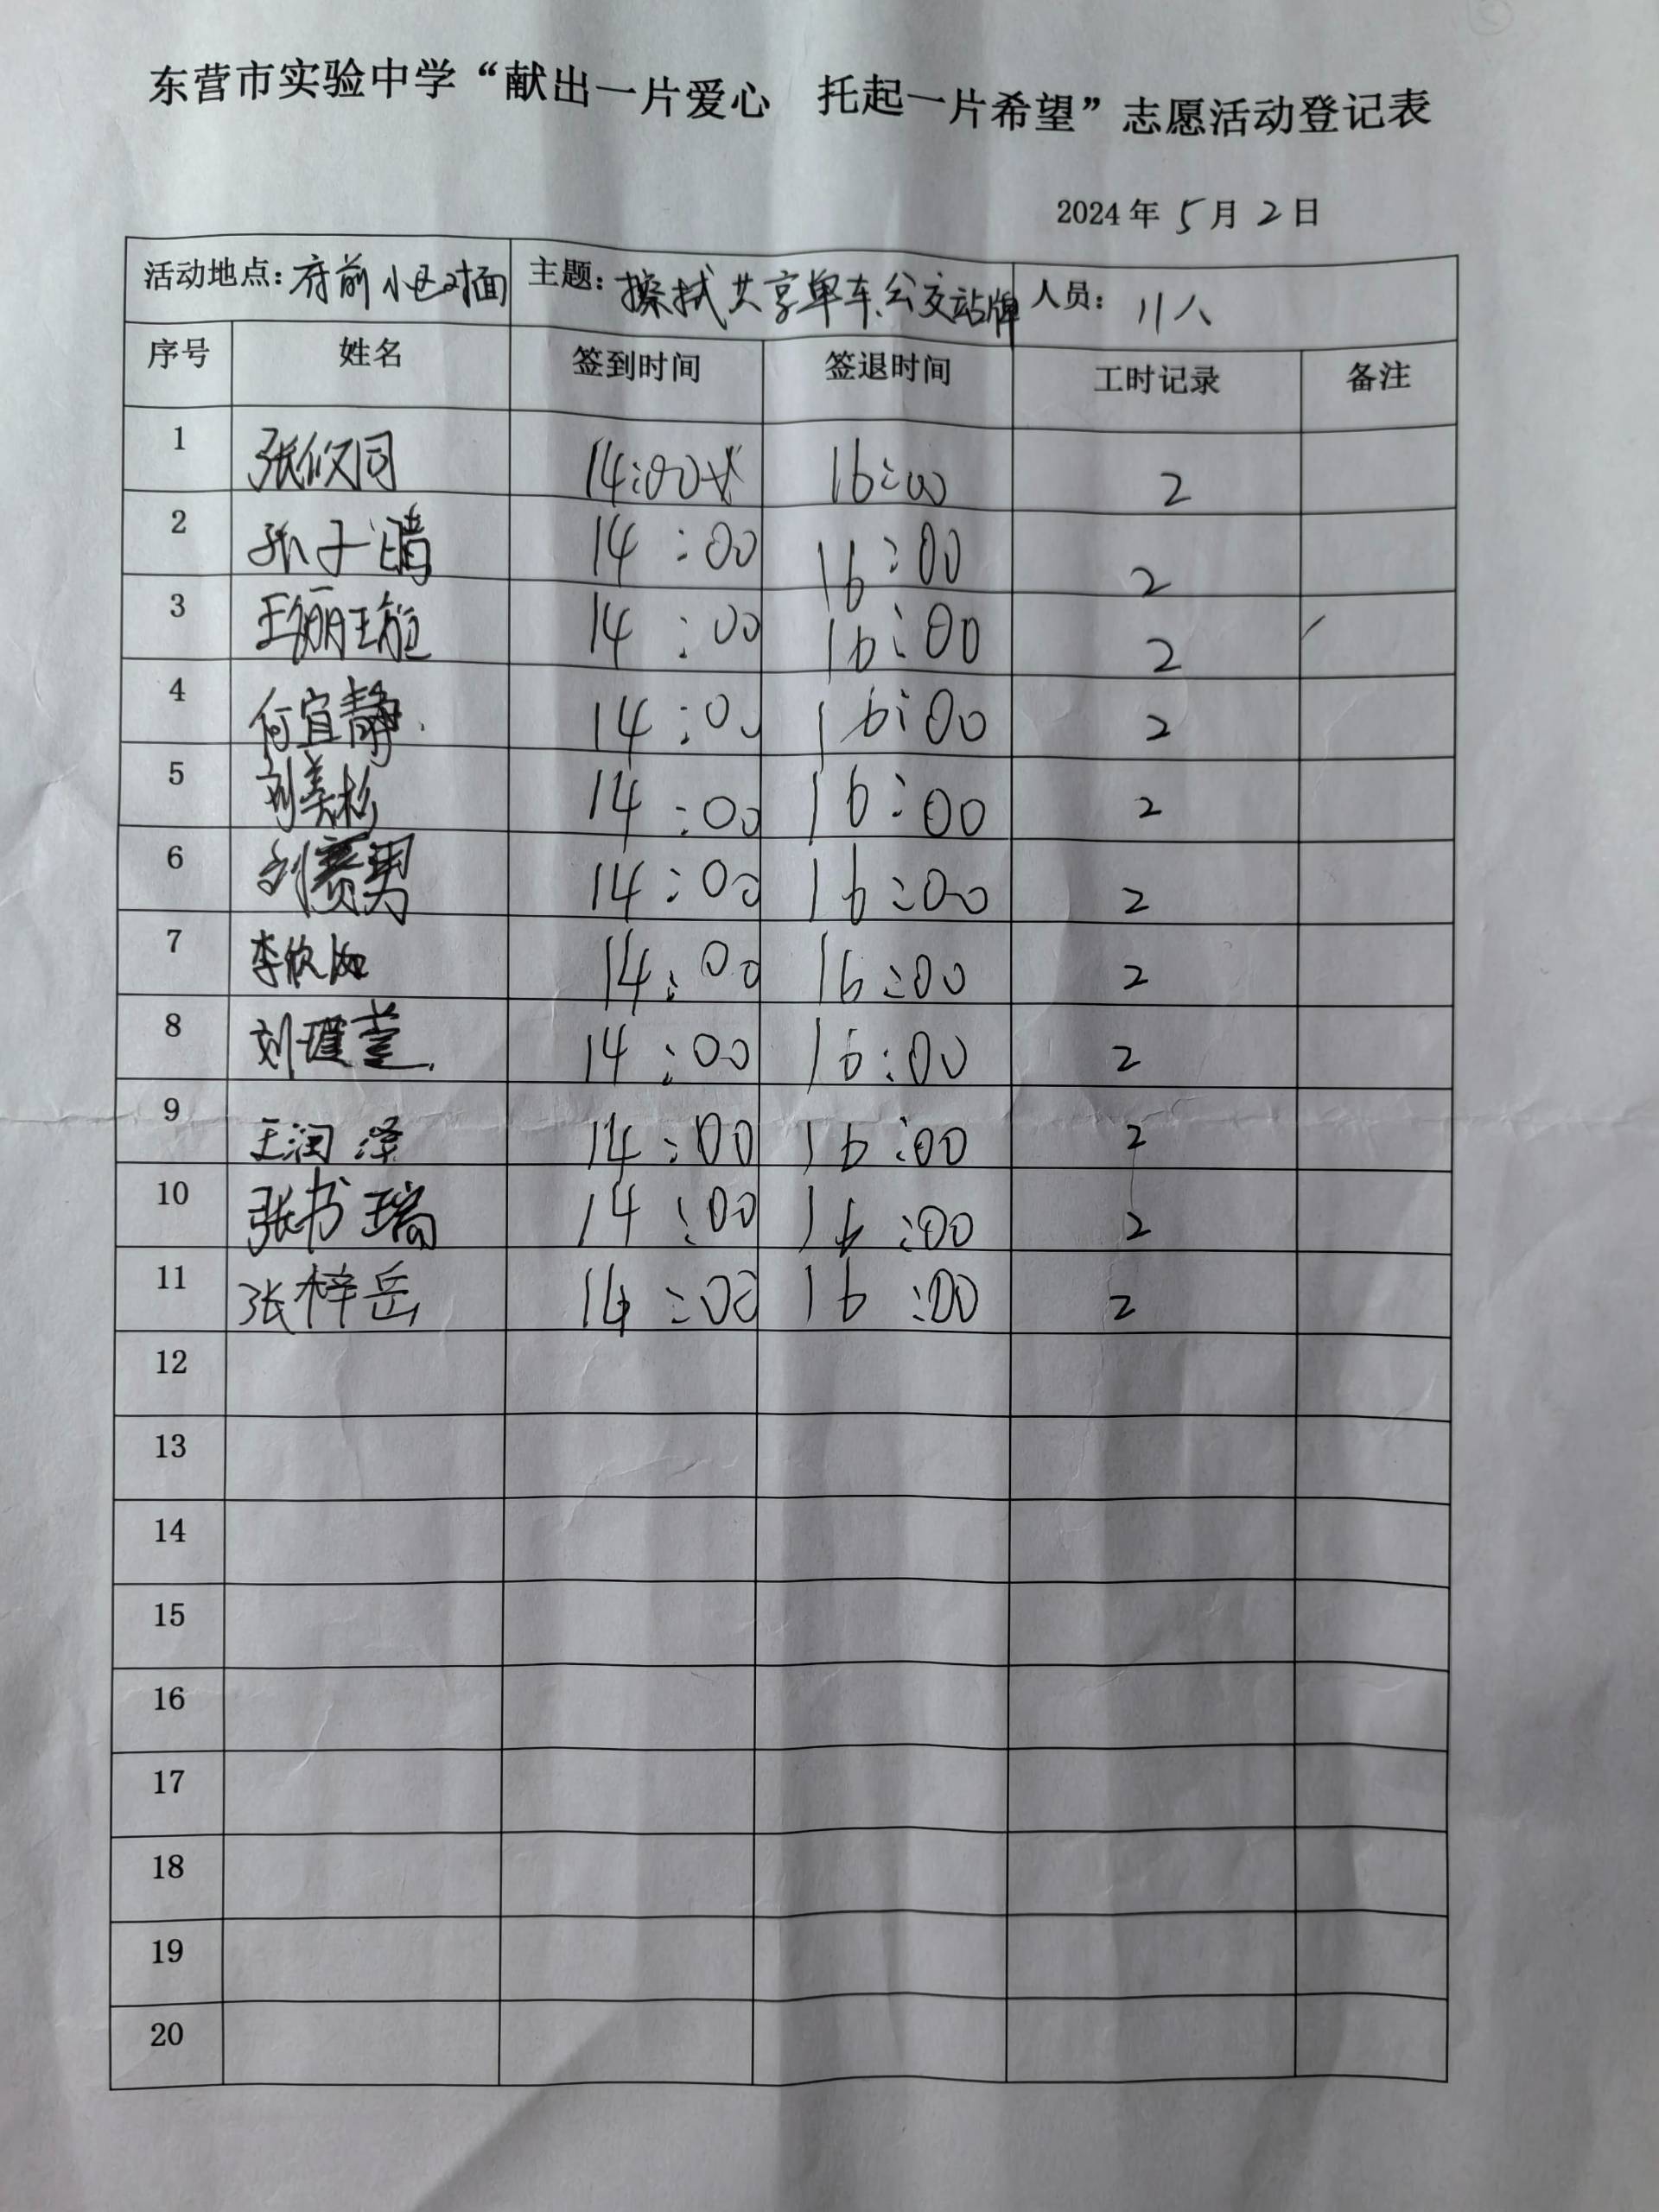 东营市实验中学“献出一片爱心 托起一片希望”志愿活动登记表
2024年5月2日
活动地点：府前小区对面 主题：擦拭共享单车、公交站牌 人员：11人
序号 姓名 签到时间 签退时间 工时记录 备注
1 张 同 14:00 16:00 2
2 子 14:00 16:00 2
3 王 14:00 16:00 2
4 何宜静 14:00 16:00 2
5 刘美杉 14:00 16:00 2
6 刘赛男 14:00 16:00 2
7 李欣 14:00 16:00 2
8 刘瑾萱 14:00 16:00 2
9 王润泽 14:00 16:00 2
10 张书瑞 14:00 16:00 2
11 张梓岳 14:00 16:00 2
12
13
14
15
16
17
18
19
20